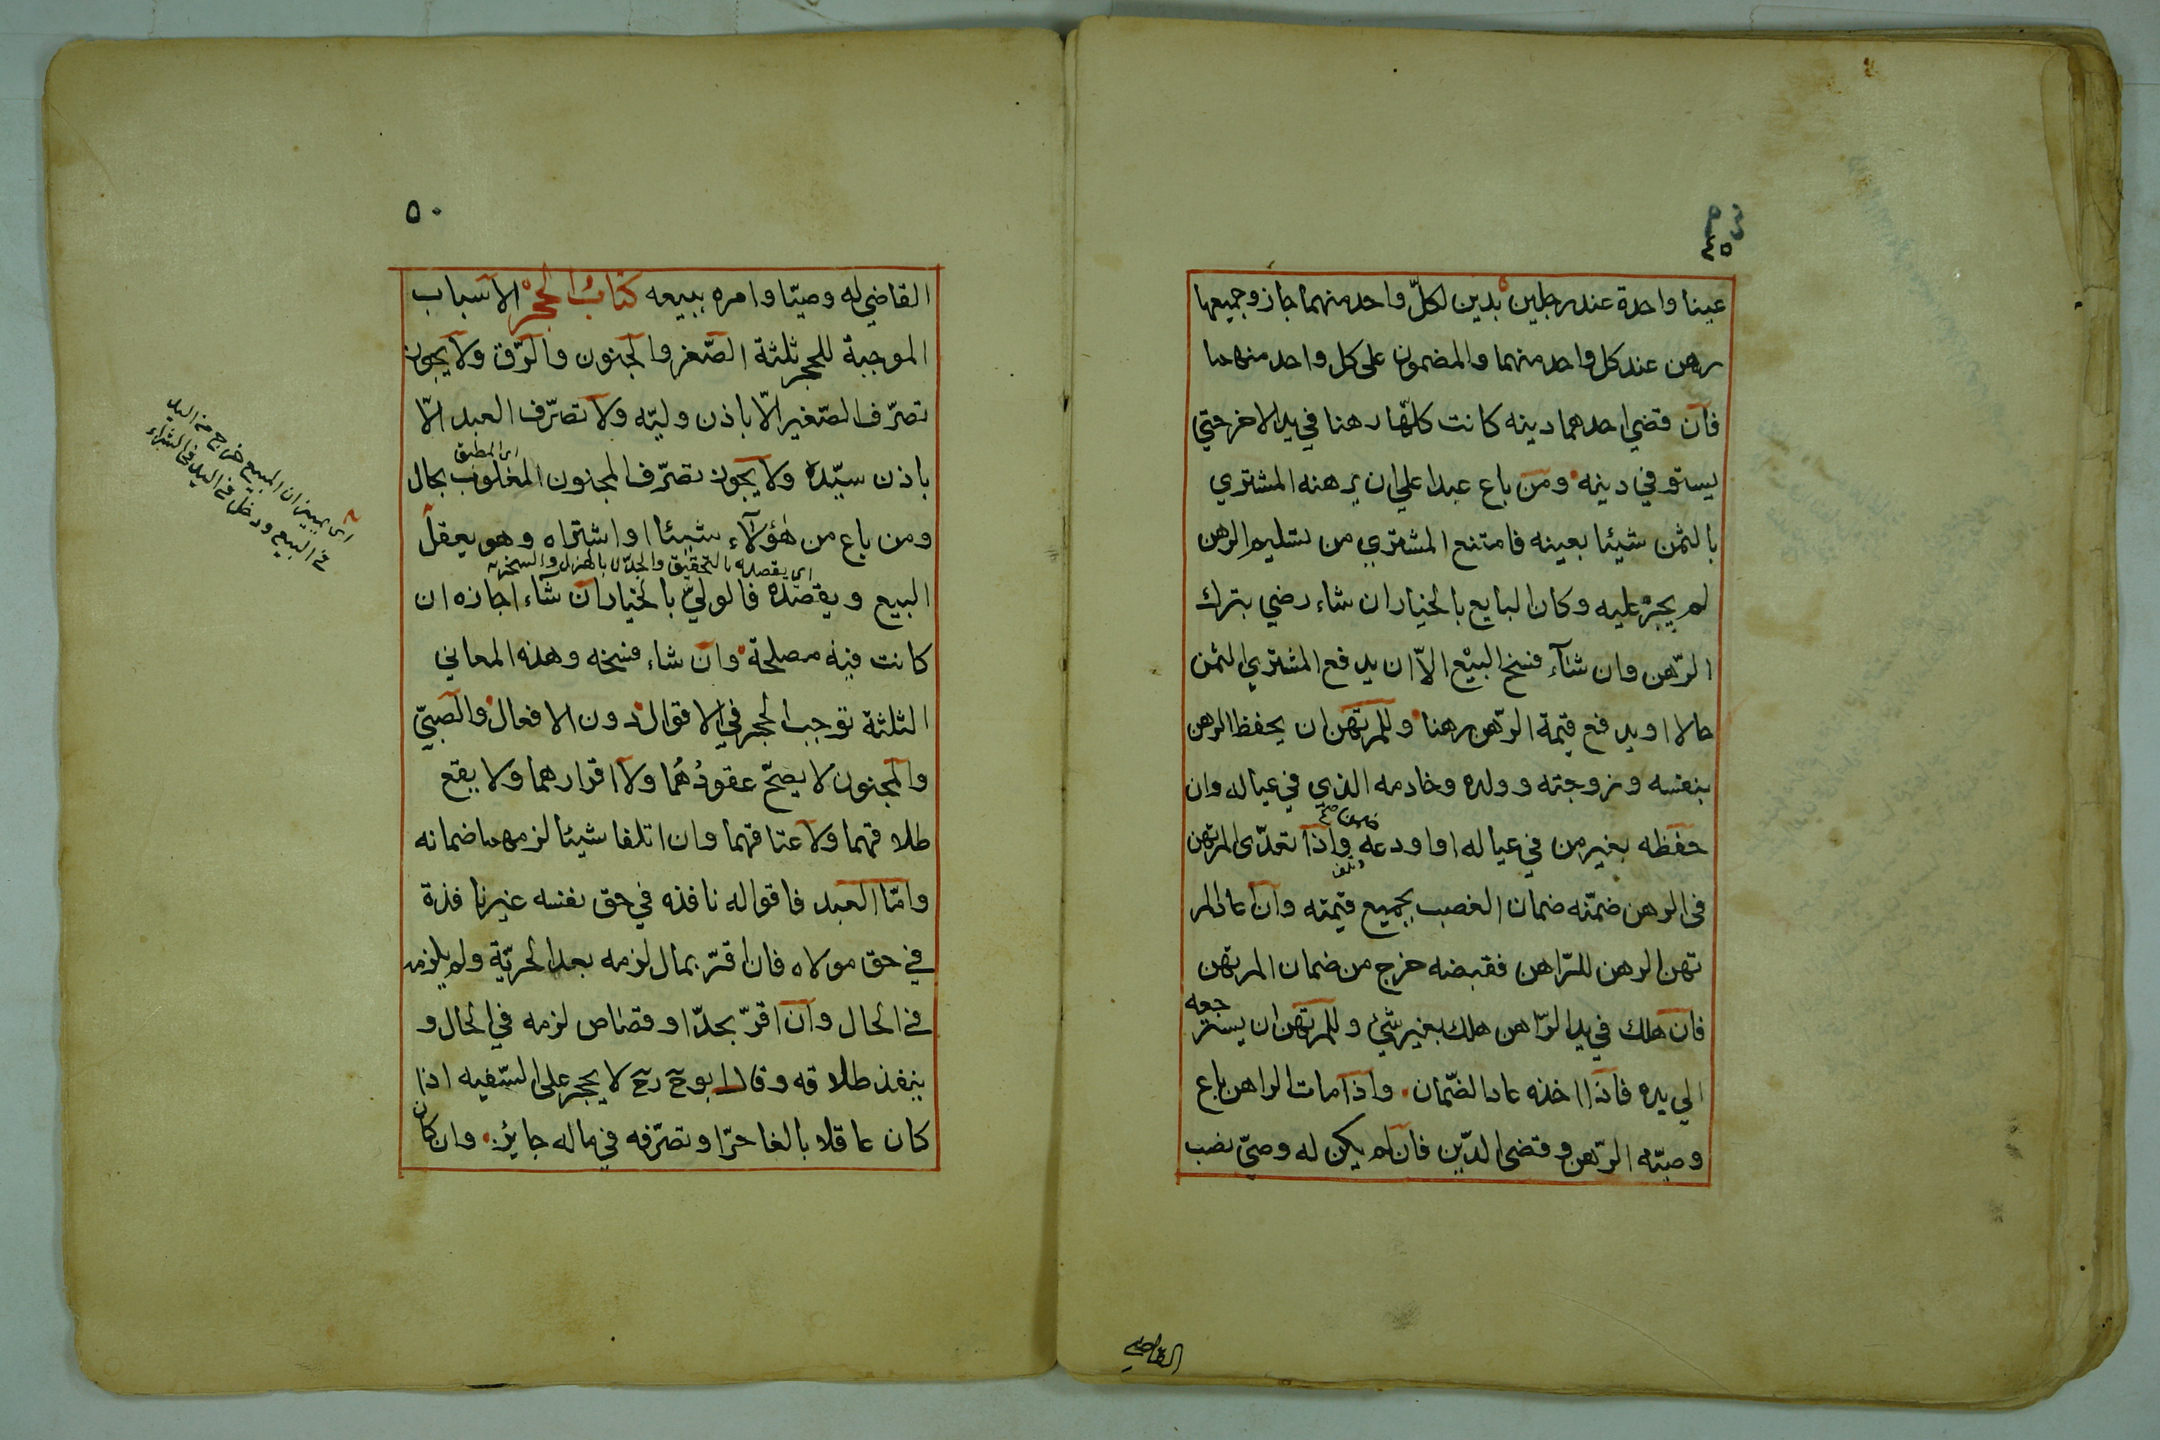 ٤٥
عينا واحدة عند رجلين بدين لكلّ واحد منهما جاز وجميعها
رهن عند كل واحد منهما والمضمون على كل واحد منهما
فان قضي احدهما دينه كانت كلّها رهنا في يد الاخر حتي
يستوفي دينه ومن باع عبدا علي ان يرهنه المشتري
بالثمن شيئا بعينه فامتنع المشتري من تسليم الرهن
لم يجبر عليه وكان البايع بالخيار ان شاء رضي بترك
الرّهن وان شآء فسخ البيع الاّ ان يدفع المشتري الثمن
حالا او يدفع قيمة الرّهن رهنا وللمرتهن ان يحفظ الرهن
بنفسه وزوجته وولده وخادمه الذي في عياله وان
ضمن
حفظه بغير من في عياله او اودعه واذا تعدّى المرتهن
وتلف
في الرهن ضمّنه ضمان الغصب بجميع قيمته وان عاد المر
تهن الرهن للرّاهن فقبضه خرج من ضمان المرتهن
فان هلك في يد الرّاهن هلك بغير شئ وللمرتهن ان يستر
جعه
الي يده فاذا اخذه عاد الضّمان واذا مات الراهن باع
وصيّه الرّهن وقضي الدّين فان لم يكن له وصيّ نصب
القاضي
٥٠
القاضي له وصيّا وامره ببيعه كتابُ الحجر الاسباب
الموجبة للحجر ثلثة الصّغر والجنون والرّق ولا يجوز
تصرّف الصّغير الّا باذن وليّه ولا تصرّف العبد الّا
اى المطبق
باذن سيّده ولا يجوز تصرّف المجنون المغلوب بحال
ومن باع من هؤلآء شيئا او اشتراه وهو يعقل
اى يقصده بالتحقيق والجدّ لا بالهزل والسخرية
البيع ويقصده فالوليّ بالخيار ان شآء اجازه ان
كانت فيه مصلحة وان شاء فسخه وهذه المعاني
الثلثة توجب الحجر في الاقوال دون الافعال والصبيّ
والمجنون لا يصحّ عقودُهُما ولا اقرارهما ولا يقع
طلاقهما ولا عتاقهما وان اتلفا شيئا لزمهما ضمانه
وامّا العبد فاقواله نافذه في حق نفسه غير نافذة
في حق مولاه فان اقرّ بمال لزمه بعد الحريّة ولم يلزمه
في الحال وان اقرّ بحدّ او قصاص لزمه في الحال و
ينفذ طلاقه وقال ابوح رح لا يحجر على السّفيه اذا
كان عاقلا بالغا حرّا وتصرّفه في ماله جايز وان كان
اى يميز ان المبيع خرج من اليد
في البيع ودخل في اليد في الشراء